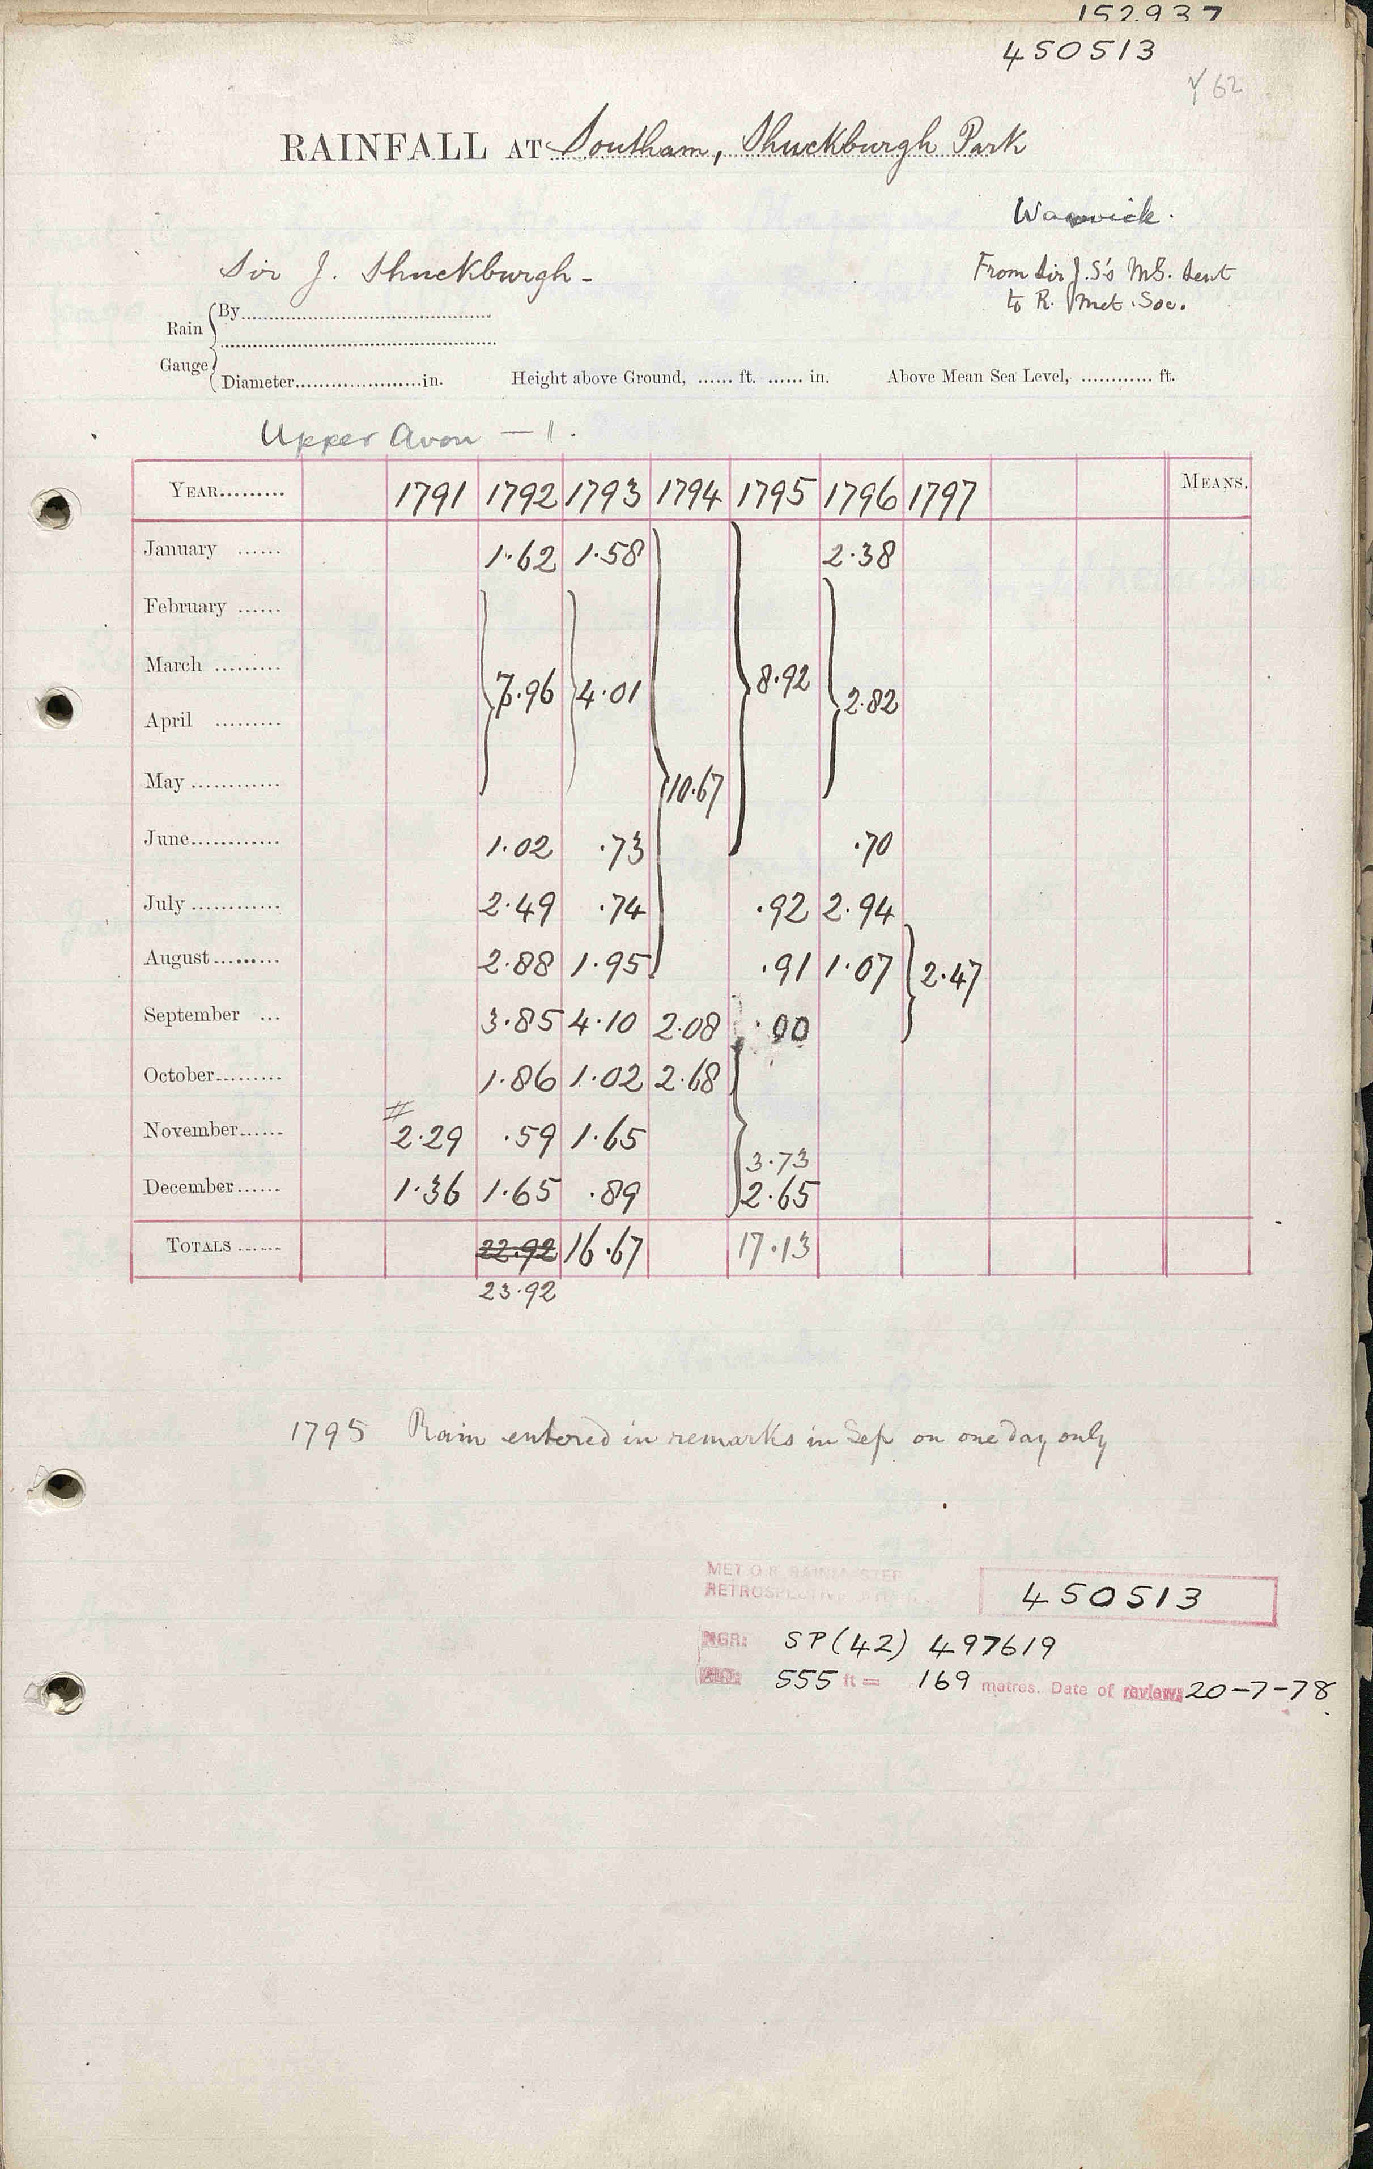 152937
450513
Y 62
RAINFALL AT Southam, Shuckburgh Park
Warwick.
Sir J. Shuckburgh -
From Sir J.S's MS. sent
to R. Met. Soc.
Rain Gauge
By
Diameter in. Height above Ground, ft. in. Above Mean Sea Level, ft.
Upper Avon - 1.
YEAR 1791 1792 1793 1794 1795 1796 1797 MEANS.
January 1.62 1.58 2.38
February
March 7.96 4.01 8.92
April 2.82
May 10.67
June 1.02 .73 .70
July 2.49 .74 .92 2.94
August 2.88 1.95 .91 1.07 2.47
September 3.85 4.10 2.08 .00
October 1.86 1.02 2.68
November # 2.29 .59 1.65
3.73
December 1.36 1.65 .89 2.65
TOTALS 22.92 16.67 17.13
23.92
1795 Rain entered in remarks in Sep on one day only
MET O
RETROSPECTIVE
450513
NGR: SP(42) 497619
555 ft = 169 metres. Date of review: 20-7-78